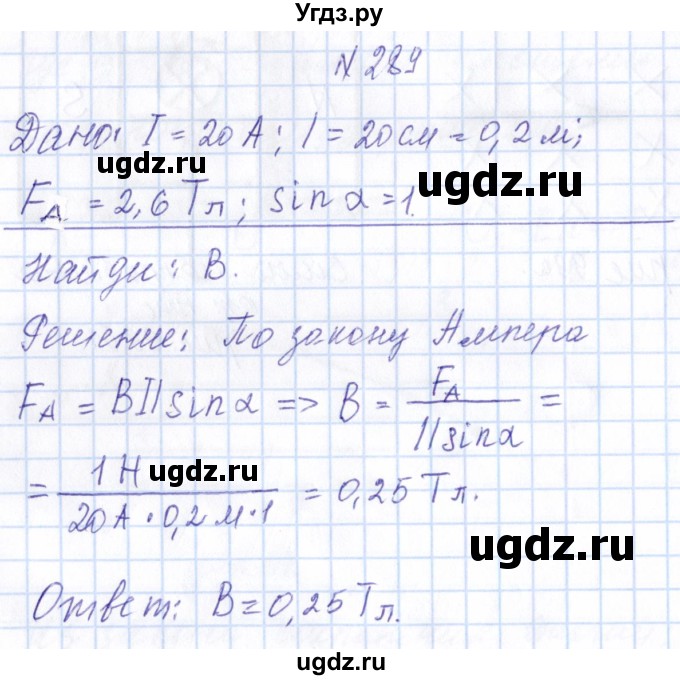 Угдз.ру
№ 289
Дано: I = 20 А; l = 20 см = 0,2 м;
ugdz.ru
ugdz.ru
F_A = 2,6 Тл; sin α = 1.
Найди: B.
Решение: По закону Ампера
F_A = BIl sin α => B = F_A / Il sin α =
= 1 Н / 20 А · 0,2 м · 1 = 0,25 Тл.
ugdz.ru
ugdz.ru
Ответ: B = 0,25 Тл.
ugdz.ru